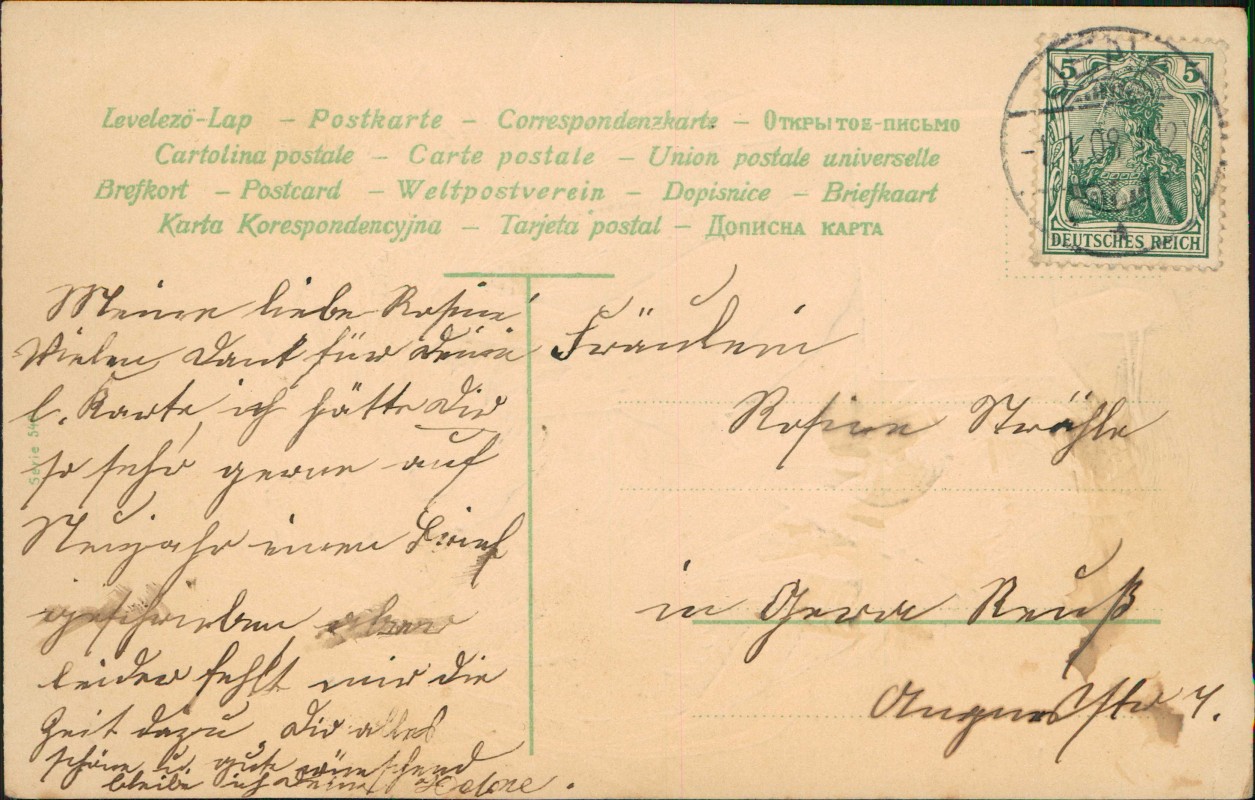 Levelezö-Lap – Postkarte – Correspondenzkarte – Открытое-письмо
Cartolina postale – Carte postale – Union postale universelle
Brefkort – Postcard – Weltpostverein – Dopisnice – Briefkaart
Karta Korespondencyjna – Tarjeta postal – Дописна карта
5 5
DEUTSCHES REICH
1.1.09
Serie 54
Meine liebe Rosine
Vielen Dank für deine
l. Karte, ich hätte Dir
so sehr gerne auf
Neujahr einen Brief
geschrieben aber
leider fehlt mir die
Zeit dazu, Dir alles
schöne u. gute wünschend
bleibe ich Deine
Fräulein
Rosine Strähle
in Gera Reuß
Str 4.